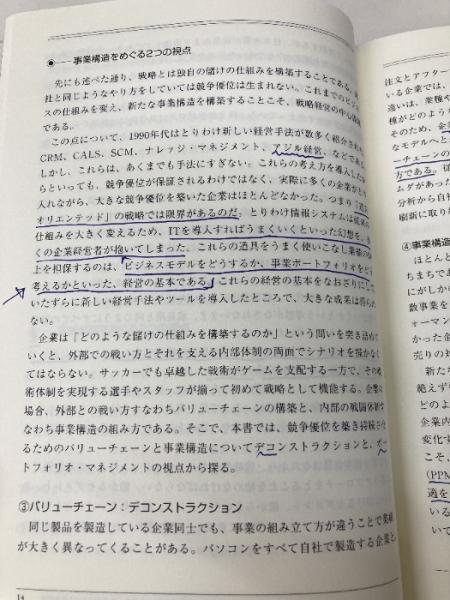 事業構造をめぐる2つの視点
先にも述べた通り、戦略とは独自の儲けの仕組みを構築することである。
社と同じようなやり方をしていては競争優位は生まれない。これまでのビジ
スの仕組みを変え、新たな事業構造を構築することこそ、戦略経営の中心課題
である。
この点について、1990年代はとりわけ新しい経営手法が数多く紹介され
CRM、CALS、SCM、ナレッジ・マネジメント、アジル経営、などであ
しかし、これらは、あくまでも手法にすぎない。これらの考え方を導入した
らといっても、競争優位が保証されるわけではなく、実際に多くの企業が
入れながら、大きな競争優位を築いた企業はほとんどなかった。つまり
オリエンテッド」の戦略では限界があるのだ。とりわけ情報システムは従来の
仕組みを大きく変えるため、ITを導入すればうまくいくといった幻想を、
くの企業経営者が抱いてしまった。これらの道具をうまく使いこなし業績の
上を担保するのは、「ビジネスモデルをどうするか、事業ポートフォリオをどう
考えるかといった、経営の基本である」これらの経営の基本をなおざりにして
いたずらに新しい経営手法やツールを導入したところで、大きな成果は得られ
ない。
企業は「どのような儲けの仕組みを構築するのか」という問いを突き詰めて
いくと、外部での戦い方とそれを支える内部体制の両面でシナリオを描かなく
てはならない。サッカーでも卓越した戦術がゲームを支配する一方で、その戦
術体制を実現する選手やスタッフが揃って初めて戦略として機能する。企業の
場合、外部との戦い方すなわちバリューチェーンの構築と、内部の戦闘体制す
なわち事業構造の組み方である。そこで、本書では、競争優位を築き持続させ
るためのバリューチェーンと事業構造についてデコンストラクションと、ポー
トフォリオ・マネジメントの視点から探る。
③バリューチェーン：デコンストラクション
同じ製品を製造している企業同士でも、事業の組み立て方が違うことで業績
が大きく異なってくることがある。パソコンをすべて自社で製造する企業と、
14
注文とアフター
いる企業では、
違いは、業種や
種がどのよう
そのため、企
なモデルへと
ーチェーンの
方である。従
ムダがあった
分析から自社
刷新に取り
④事業構造
ほとんど
ちまちであ
にがしか
数事業を
ォーマン
かった企
売りの対
新た
絶えず
どのよ
企業内
変化す
こそ、
(PPM
適を
いる
いて